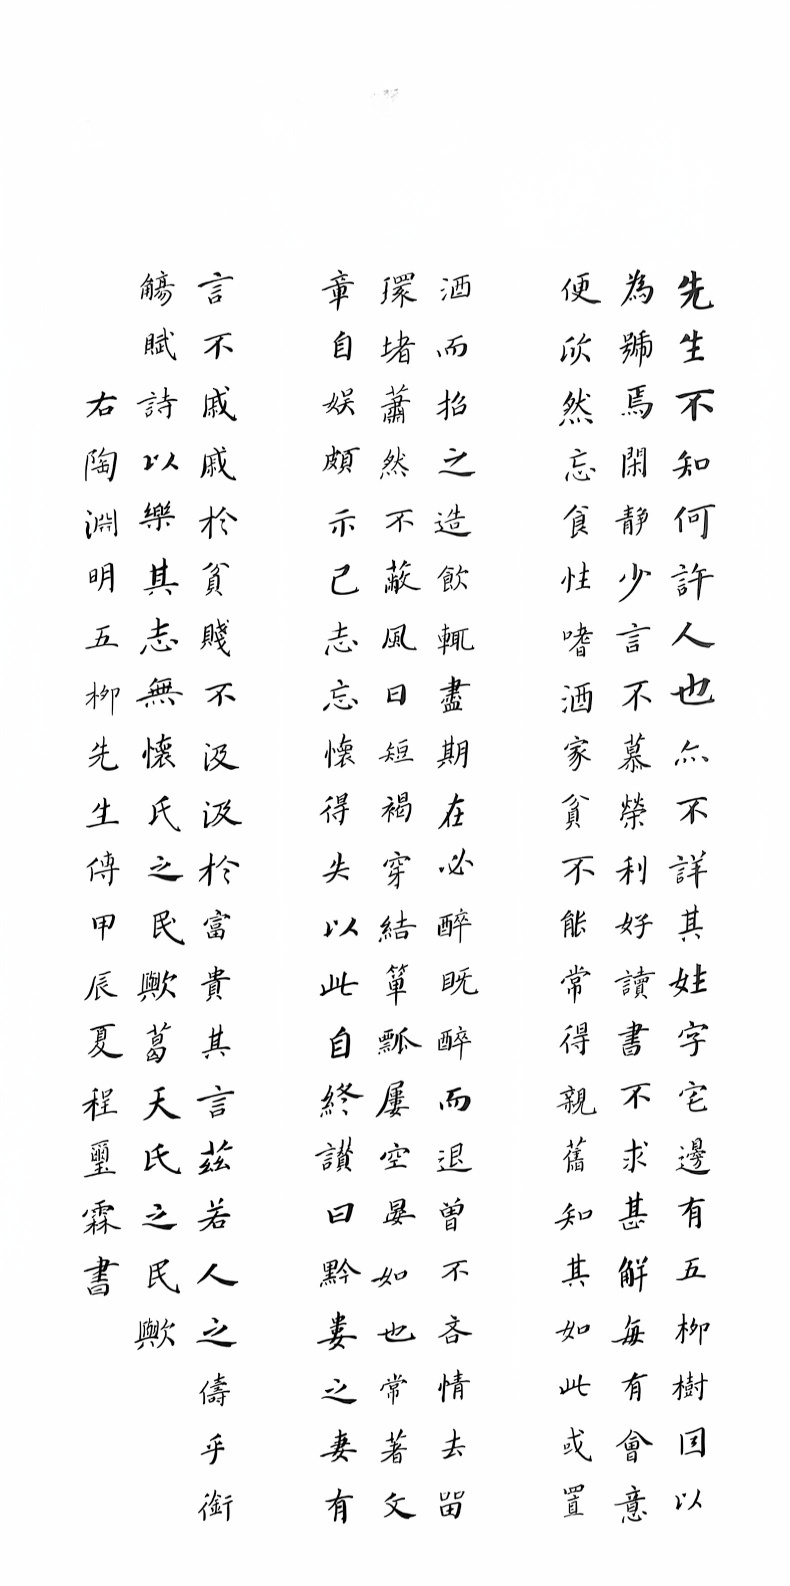 先生不知何許人也亦不詳其姓字宅邊有五柳樹因以
為號焉閑静少言不慕榮利好讀書不求甚解每有會意
便欣然忘食性嗜酒家貧不能常得親舊知其如此或置
酒而招之造飲輒盡期在必醉既醉而退曾不吝情去留
環堵蕭然不蔽風日短褐穿結簞瓢屢空晏如也常著文
章自娱頗示己志忘懷得失以此自終讃曰黔婁之妻有
言不戚戚於貧賤不汲汲於富貴其言茲若人之儔乎銜
觴賦詩以樂其志無懷氏之民歟葛天氏之民歟
右陶淵明五柳先生傳甲辰夏程璽霖書